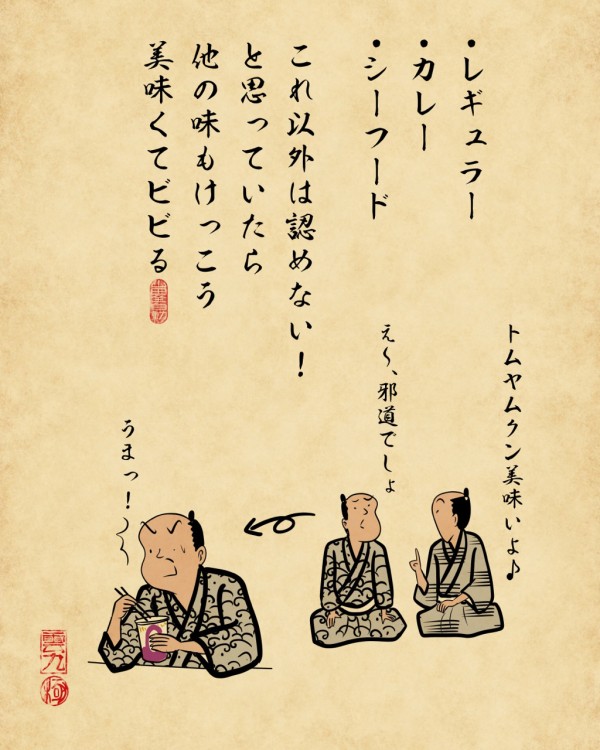 ・レギュラー
・カレー
・シーフード
これ以外は認めない！
と思っていたら
他の味もけっこう
美味くてビビる
トムヤムクン美味いよ♪
え〜、邪道でしょ
うまっ！